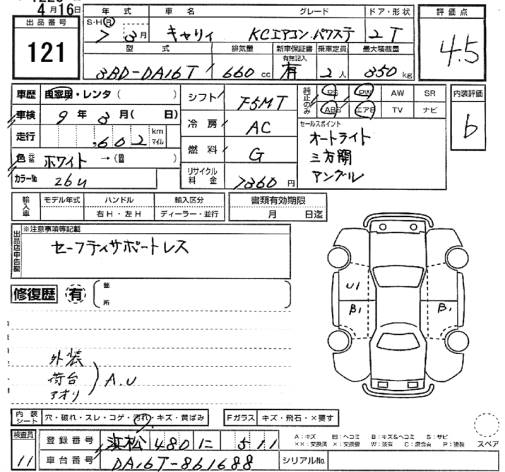 4月16日
出品番号
121
年式 車名 グレード ドア・形状
S・H・R 7年3月 キャリィ KCエアコン パワステ 2T
型式 排気量 新車保証書 有無記入 乗車定員 最大積載量
3BD-DA16T 660cc 有 2人 350kg
評価点
4.5
車歴 自家用・レンタ( )
車検 9年3月( 日)
走行 ,602 km マイル
色 ホワイト →( )
カラーNo 26U
シフト F5MT
冷房 AC
燃料 G
リサイクル料金 7260円
PS PW AW SR
ABS エアB TV ナビ
セールスポイント
オートライト
三方開
アングル
内装評価
b
輸入車 モデル年式 ハンドル 輸入区分 書類有効期限
右H・左H ディーラー・並行 月 日迄
出品店申告欄
※注意事項等記載
セーフティサポートレス
修復歴 有 箇所
外装
荷台
アオリ
A.U
U1
B1
B1
内装シート 穴・破れ・スレ・コゲ・汚れ・キズ・黄ばみ Fガラス キズ・飛石・×要す
検査員
11
登録番号 浜松 480 に 511
車台番号 DA16T-861688 シリアルNo.
A:キズ U:ヘコミ B:キズ&ヘコミ S:サビ
スペア